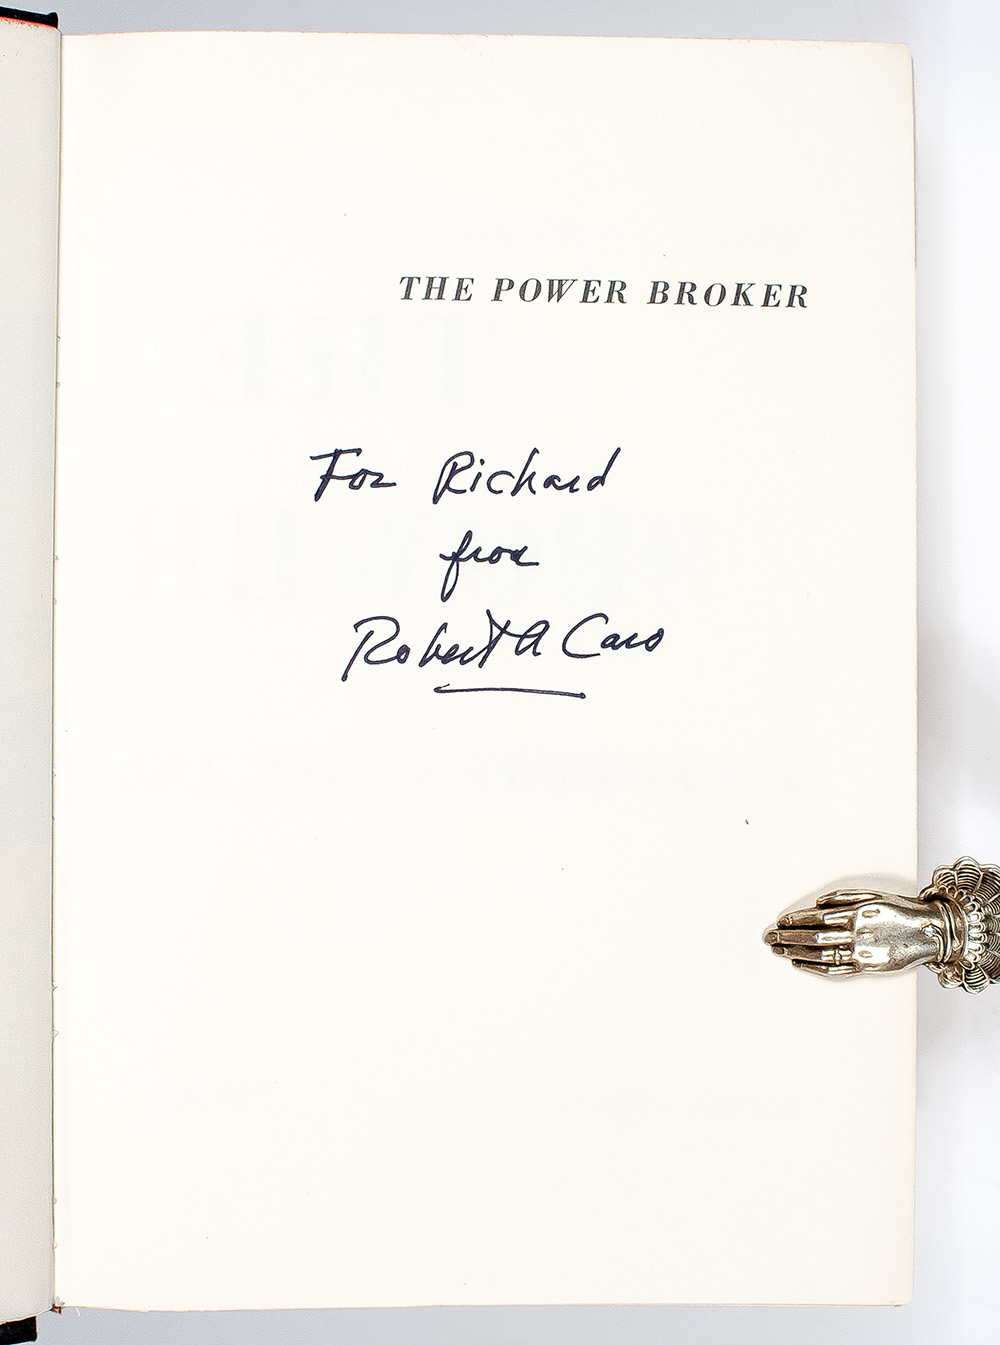 THE POWER BROKER
For Richard
from
Robert A Caro